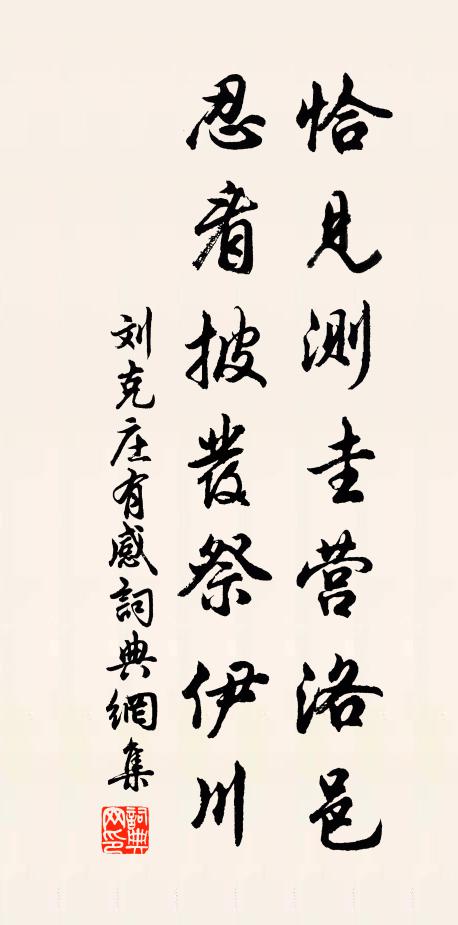 恰見測圭营洛邑
忍看披發祭伊川
刘克庄有感詞典網集
詞典網印